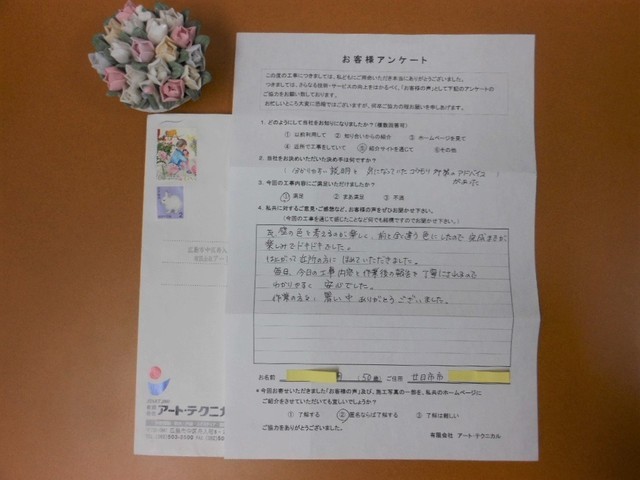 お客様アンケート
この度の工事につきましては、私どもにご用命いただき本当にありがとうございました。
つきましては、さらなる技術・サービスの向上をはかるべく、「お客様の声」として下記のアンケートの
ご協力をお願い致しております。
お忙しいところ大変に恐縮ではございますが、何卒ご協力の程お願いを申しあげます。
1. どのようにして当社をお知りになりましたか?(複数回答可)
① 以前利用して ② 知り合いからの紹介 ③ ホームページを見て
④ 近所で工事をしていて ⑤ 紹介サイトを通じて ⑥その他
2. 当社をお決めいただいた決め手は何ですか?
分かりやすい説明と 気になっていたコウモリ対策のアドバイス
があった
3. 今回の工事内容にご満足いただけましたか?
① 満足 ② まあ満足 ③ 不満
4. 私共に対するご意見・ご感想など、お客様の声をぜひお聞かせ下さい。
(今回の工事を通じて感じたことなど何でも結構ですのでお聞かせ下さい。)
壁の色を考えるのが楽しく、前と全く違う色にしたので 完成までが
楽しみでドキドキしました。
近所の方に ほめていただきました。
毎日、今日の工事内容と作業後の報告を丁寧にされるので
わかりやすく 安心でした。
作業の方々、暑い中 ありがとうございました。
お名前 (50歳) ご住所 廿日市市
*今回お寄せいただきました「お客様の声」及び、施工写真の一部を、私共のホームページに
ご紹介をさせていただいても宜しいでしょうか?
① 了解する ② 匿名ならば了解する ③ 了解は難しい
ご協力をありがとうございました。
有限会社 アート・テクニカル
アート・テクニカル